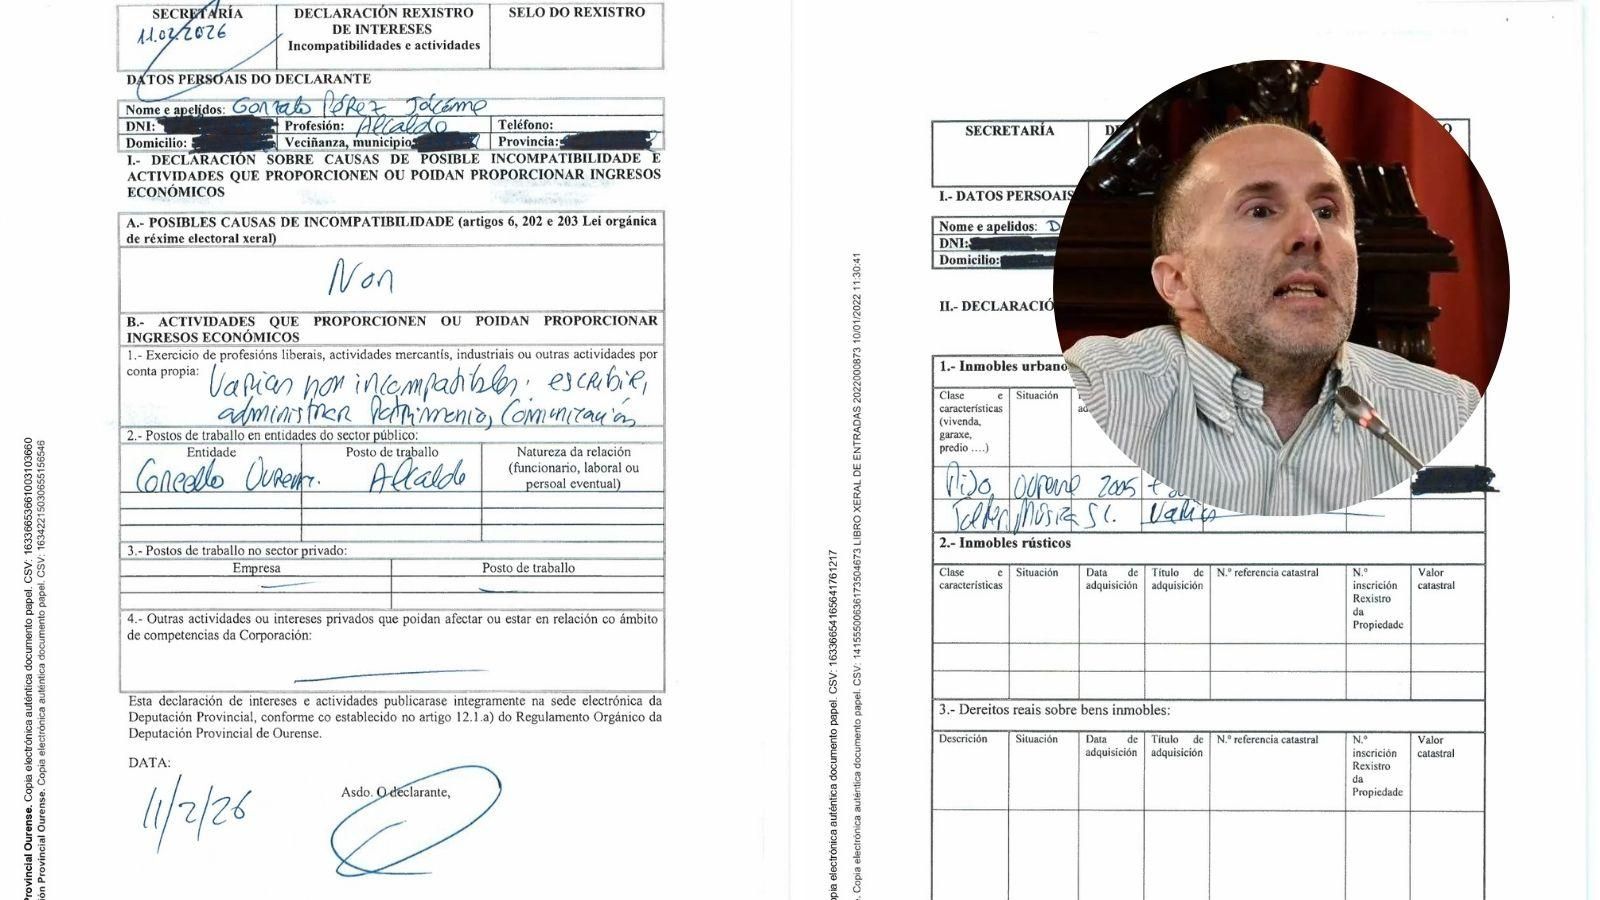 SECRETARÍA
11.02.2026
DECLARACIÓN REXISTRO
DE INTERESES
Incompatibilidades e actividades
SELO DO REXISTRO
DATOS PERSOAIS DO DECLARANTE
Nome e apelidos: Gonzalo Pérez Jácome
DNI:
Profesión: Alcalde
Teléfono:
Domicilio:
Veciñanza, municipio
Provincia:
I.- DECLARACIÓN SOBRE CAUSAS DE POSIBLE INCOMPATIBILIDADE E
ACTIVIDADES QUE PROPORCIONEN OU POIDAN PROPORCIONAR INGRESOS
ECONÓMICOS
A.- POSIBLES CAUSAS DE INCOMPATIBILIDADE (artigos 6, 202 e 203 Lei orgánica
de réxime electoral xeral)
Non
B.- ACTIVIDADES QUE PROPORCIONEN OU POIDAN PROPORCIONAR
INGRESOS ECONÓMICOS
1.- Exercicio de profesións liberais, actividades mercantís, industriais ou outras actividades por
conta propia: Varias non incompatibles: escribir,
administrar Patrimonio, Comunicación
2.- Postos de traballo en entidades do sector público:
Entidade
Posto de traballo
Natureza da relación
(funcionario, laboral ou
persoal eventual)
Concello Ourense.
Alcalde
3.- Postos de traballo no sector privado:
Empresa
Posto de traballo
4.- Outras actividades ou intereses privados que poidan afectar ou estar en relación co ámbito
de competencias da Corporación:
Esta declaración de intereses e actividades publicarase integramente na sede electrónica da
Deputación Provincial, conforme co establecido no artigo 12.1.a) do Regulamento Orgánico da
Deputación Provincial de Ourense.
DATA:
11/2/26
Asdo. O declarante,
Provincial Ourense. Copia electrónica auténtica documento papel. CSV: 16336653661003103660
ón Provincial Ourense. Copia electrónica auténtica documento papel. CSV: 16342215030655156546
SECRETARÍA
I.- DATOS PERSOAIS
Nome e apelidos:
DNI:
Domicilio:
II.- DECLARACIÓ
1.- Inmobles urbano
Clase e
características
(vivenda,
garaxe,
predio ....)
Situación
Piso
Ourense
2005
Taller Música SC.
Varios
2.- Inmobles rústicos
Clase e
características
Situación
Data de
adquisición
Título de
adquisición
N.º referencia catastral
N.º
inscrición
Rexistro
da
Propiedade
Valor
catastral
3.- Dereitos reais sobre bens inmobles:
Descrición
Situación
Data de
adquisición
Título de
adquisición
N.º referencia catastral
N.º
inscrición
Rexistro
da
Propiedade
Valor
catastral
opia electrónica auténtica documento papel. CSV: 16336654165641761217
e. Copia electrónica auténtica documento papel. CSV: 14155500636173504673 LIBRO XERAL DE ENTRADAS 2022000873 10/01/2022 11:30:41